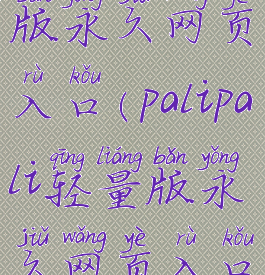 版永久网页
rù kǒu
入口(palipa
qīng liáng bǎn yǒng
li轻量版永
jiǔ wǎng yè rù kǒu
久网页入口